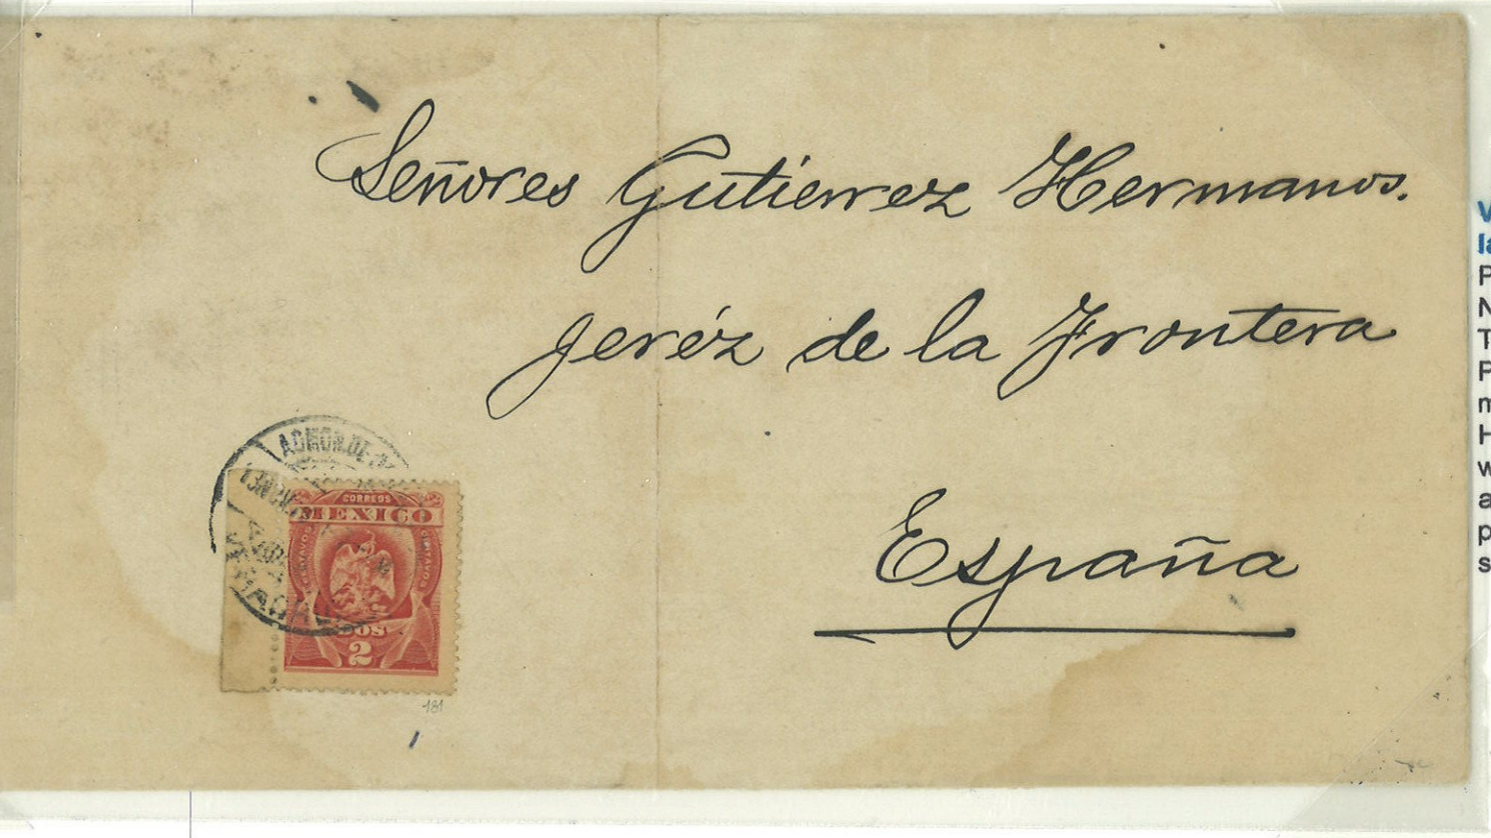 Señores Gutierrez Hermanos.
Jeréz de la Frontera
España
ADMON. DE
CORREOS
MEXICO
CENTAVOS CENTAVOS
DOS
2
181